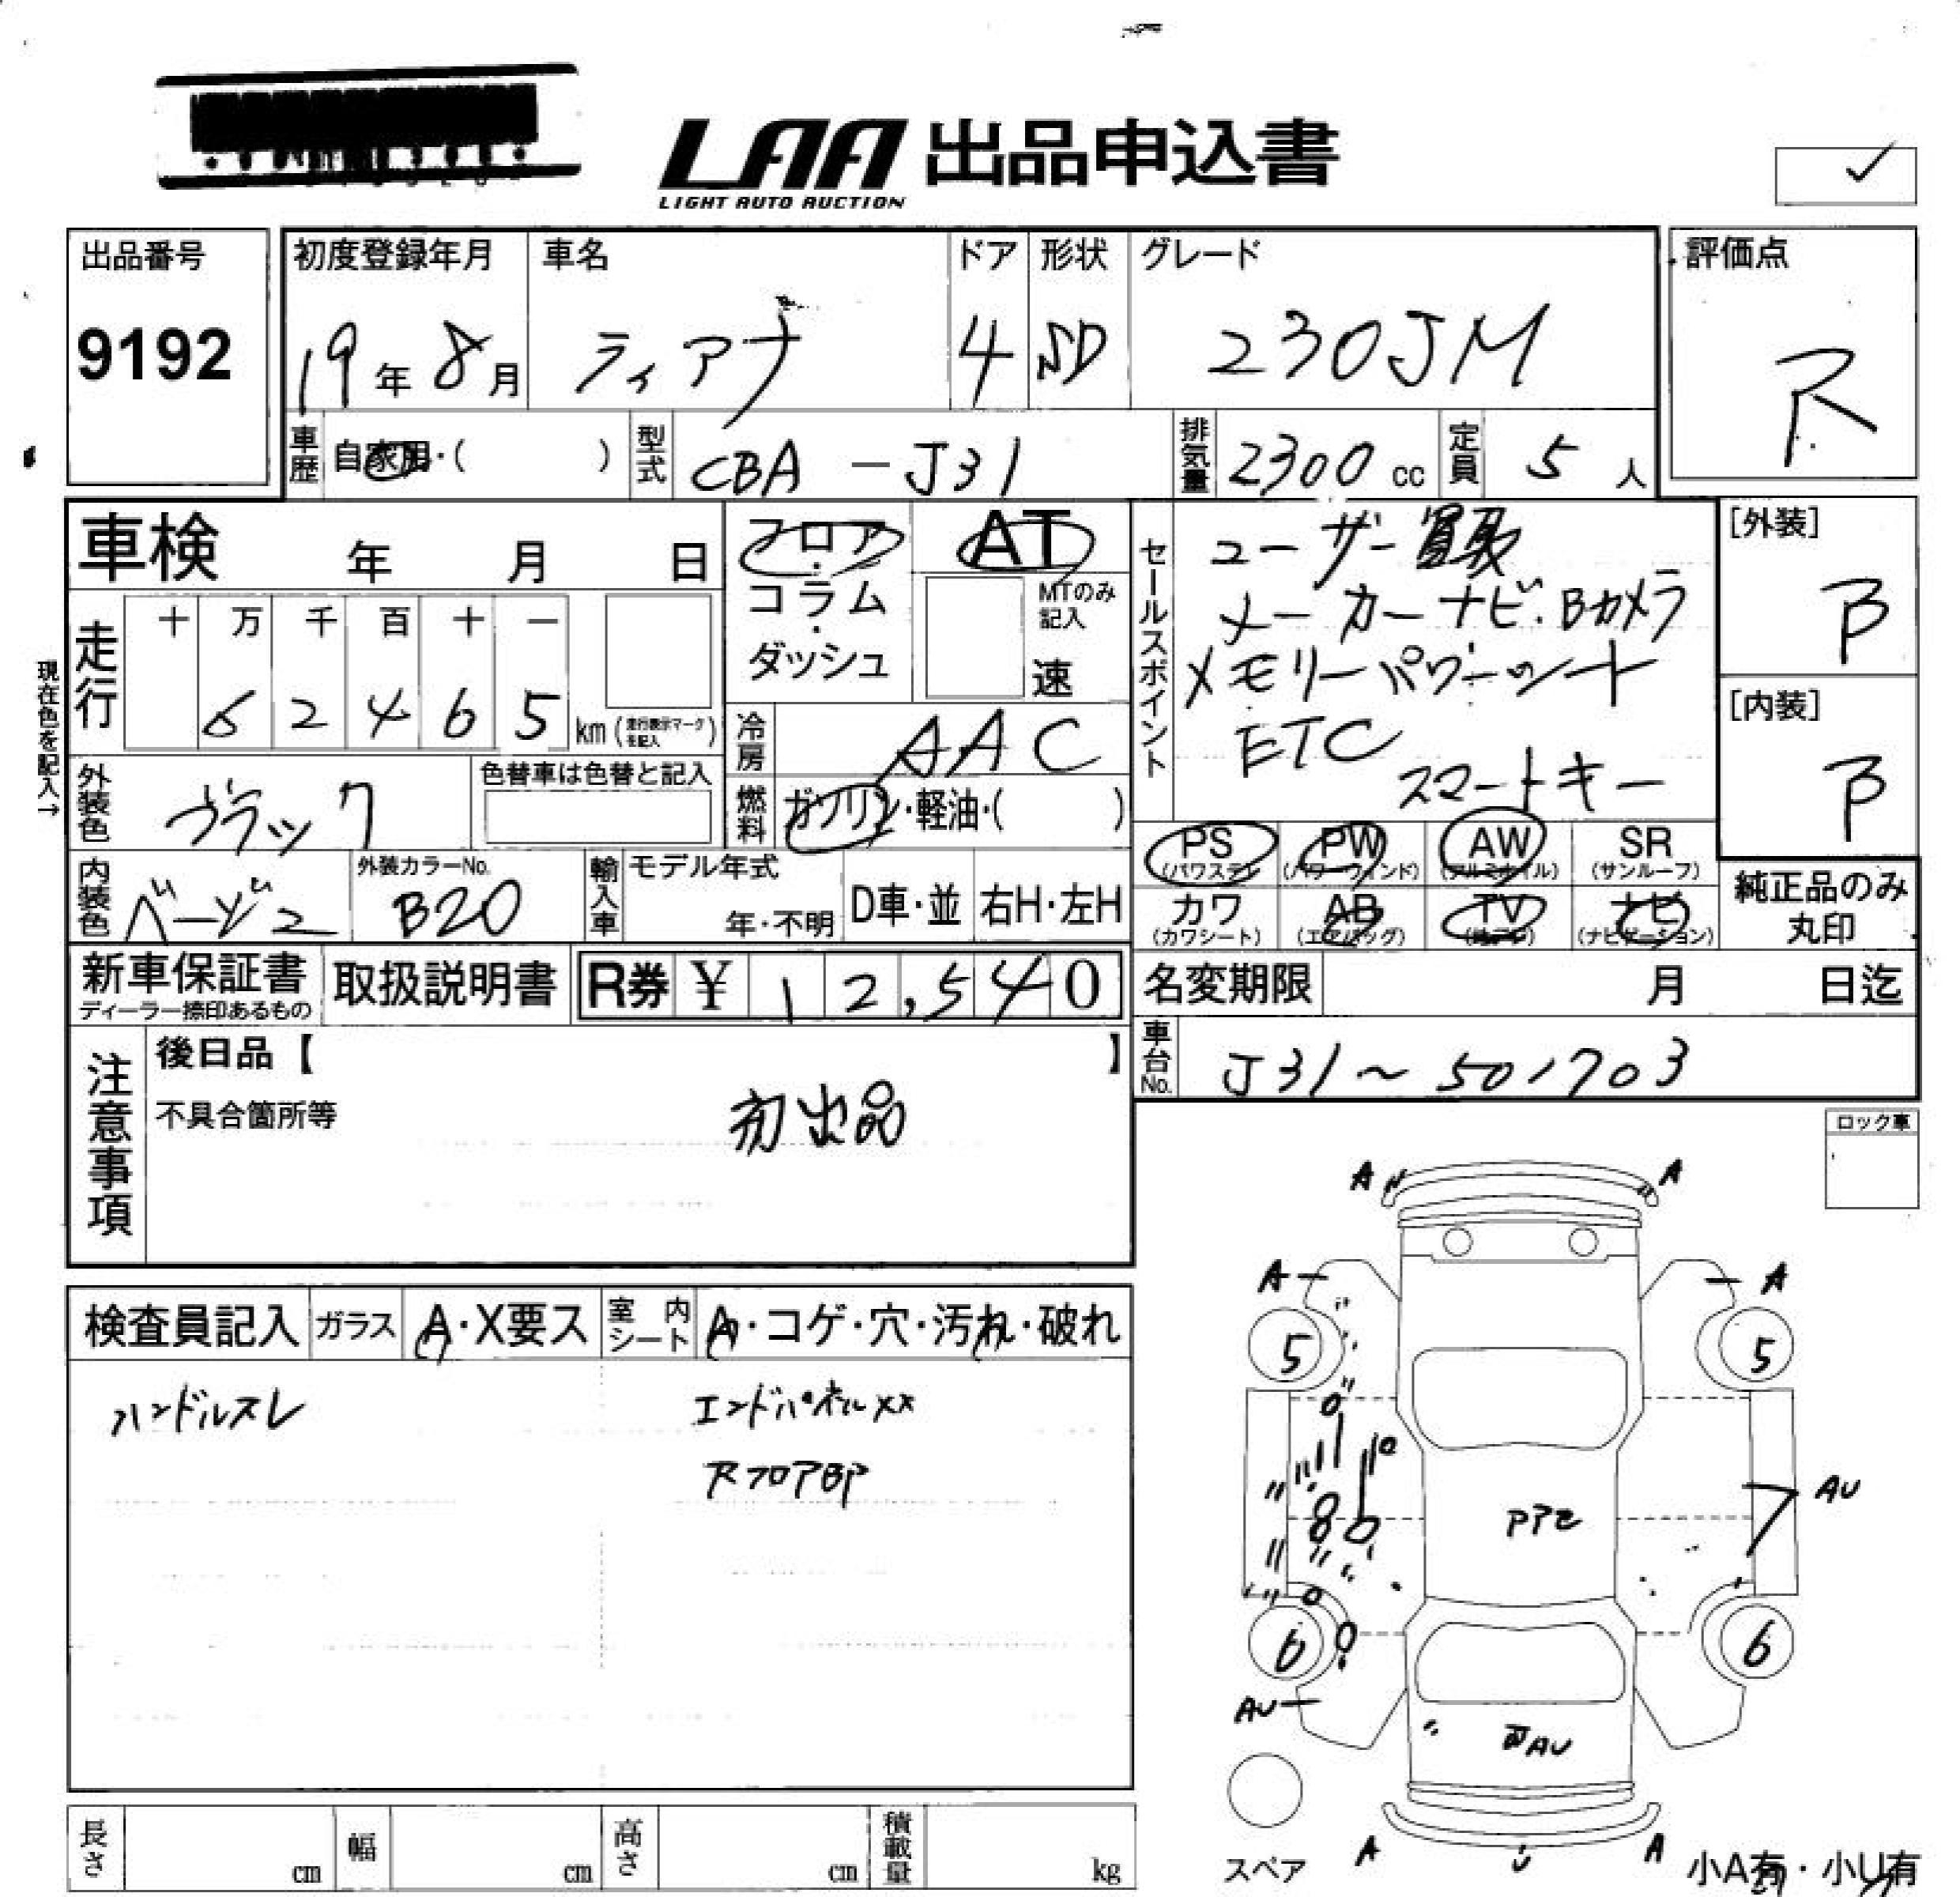 LAA 出品申込書
LIGHT AUTO AUCTION
出品番号
9192
初度登録年月
19年8月
車名
ティアナ
ドア
4
形状
SD
グレード
230JM
評価点
R
車歴
自家用・( )
型式
CBA-J31
排気量
2300 cc
定員
5人
車検 年 月 日
フロア・コラム・ダッシュ
AT
MTのみ記入
速
セールスポイント
ユーザー買取
メーカーナビ.Bカメラ
メモリーパワーシート
ETC
スマートキー
[外装]
B
[内装]
B
現在色を記入→
走行
十 万 千 百 十 一
6 2 4 6 5
km(走行表示マークを記入)
冷房
AAC
外装色
ブラック
色替車は色替と記入
燃料
ガソリン・軽油・( )
PS
(パワステ)
PW
(パワーウィンド)
AW
(アルミホイル)
SR
(サンルーフ)
カワ
(カワシート)
AB
(エアバッグ)
TV
ナビ
(ナビゲーション)
純正品のみ
丸印
内装色
ベージュ
外装カラーNo.
B20
輸入車
モデル年式
年・不明
D車・並
右H・左H
新車保証書
ディーラー捺印あるもの
取扱説明書
R券 ¥ 12,540
名変期限 月 日迄
車台No.
J31~501703
注意事項
後日品【 】
不具合箇所等
初出品
ロック車
検査員記入
ガラス
A・X要ス
室内シート
A・コゲ・穴・汚れ・破れ
ハンドルスレ
エンドパネルXX
RフロアBP
A A
A A
5 5
AU
6 6
AU
AU
A U A
スペア
小A有・小U有
長さ cm
幅 cm
高さ cm
積載量 kg